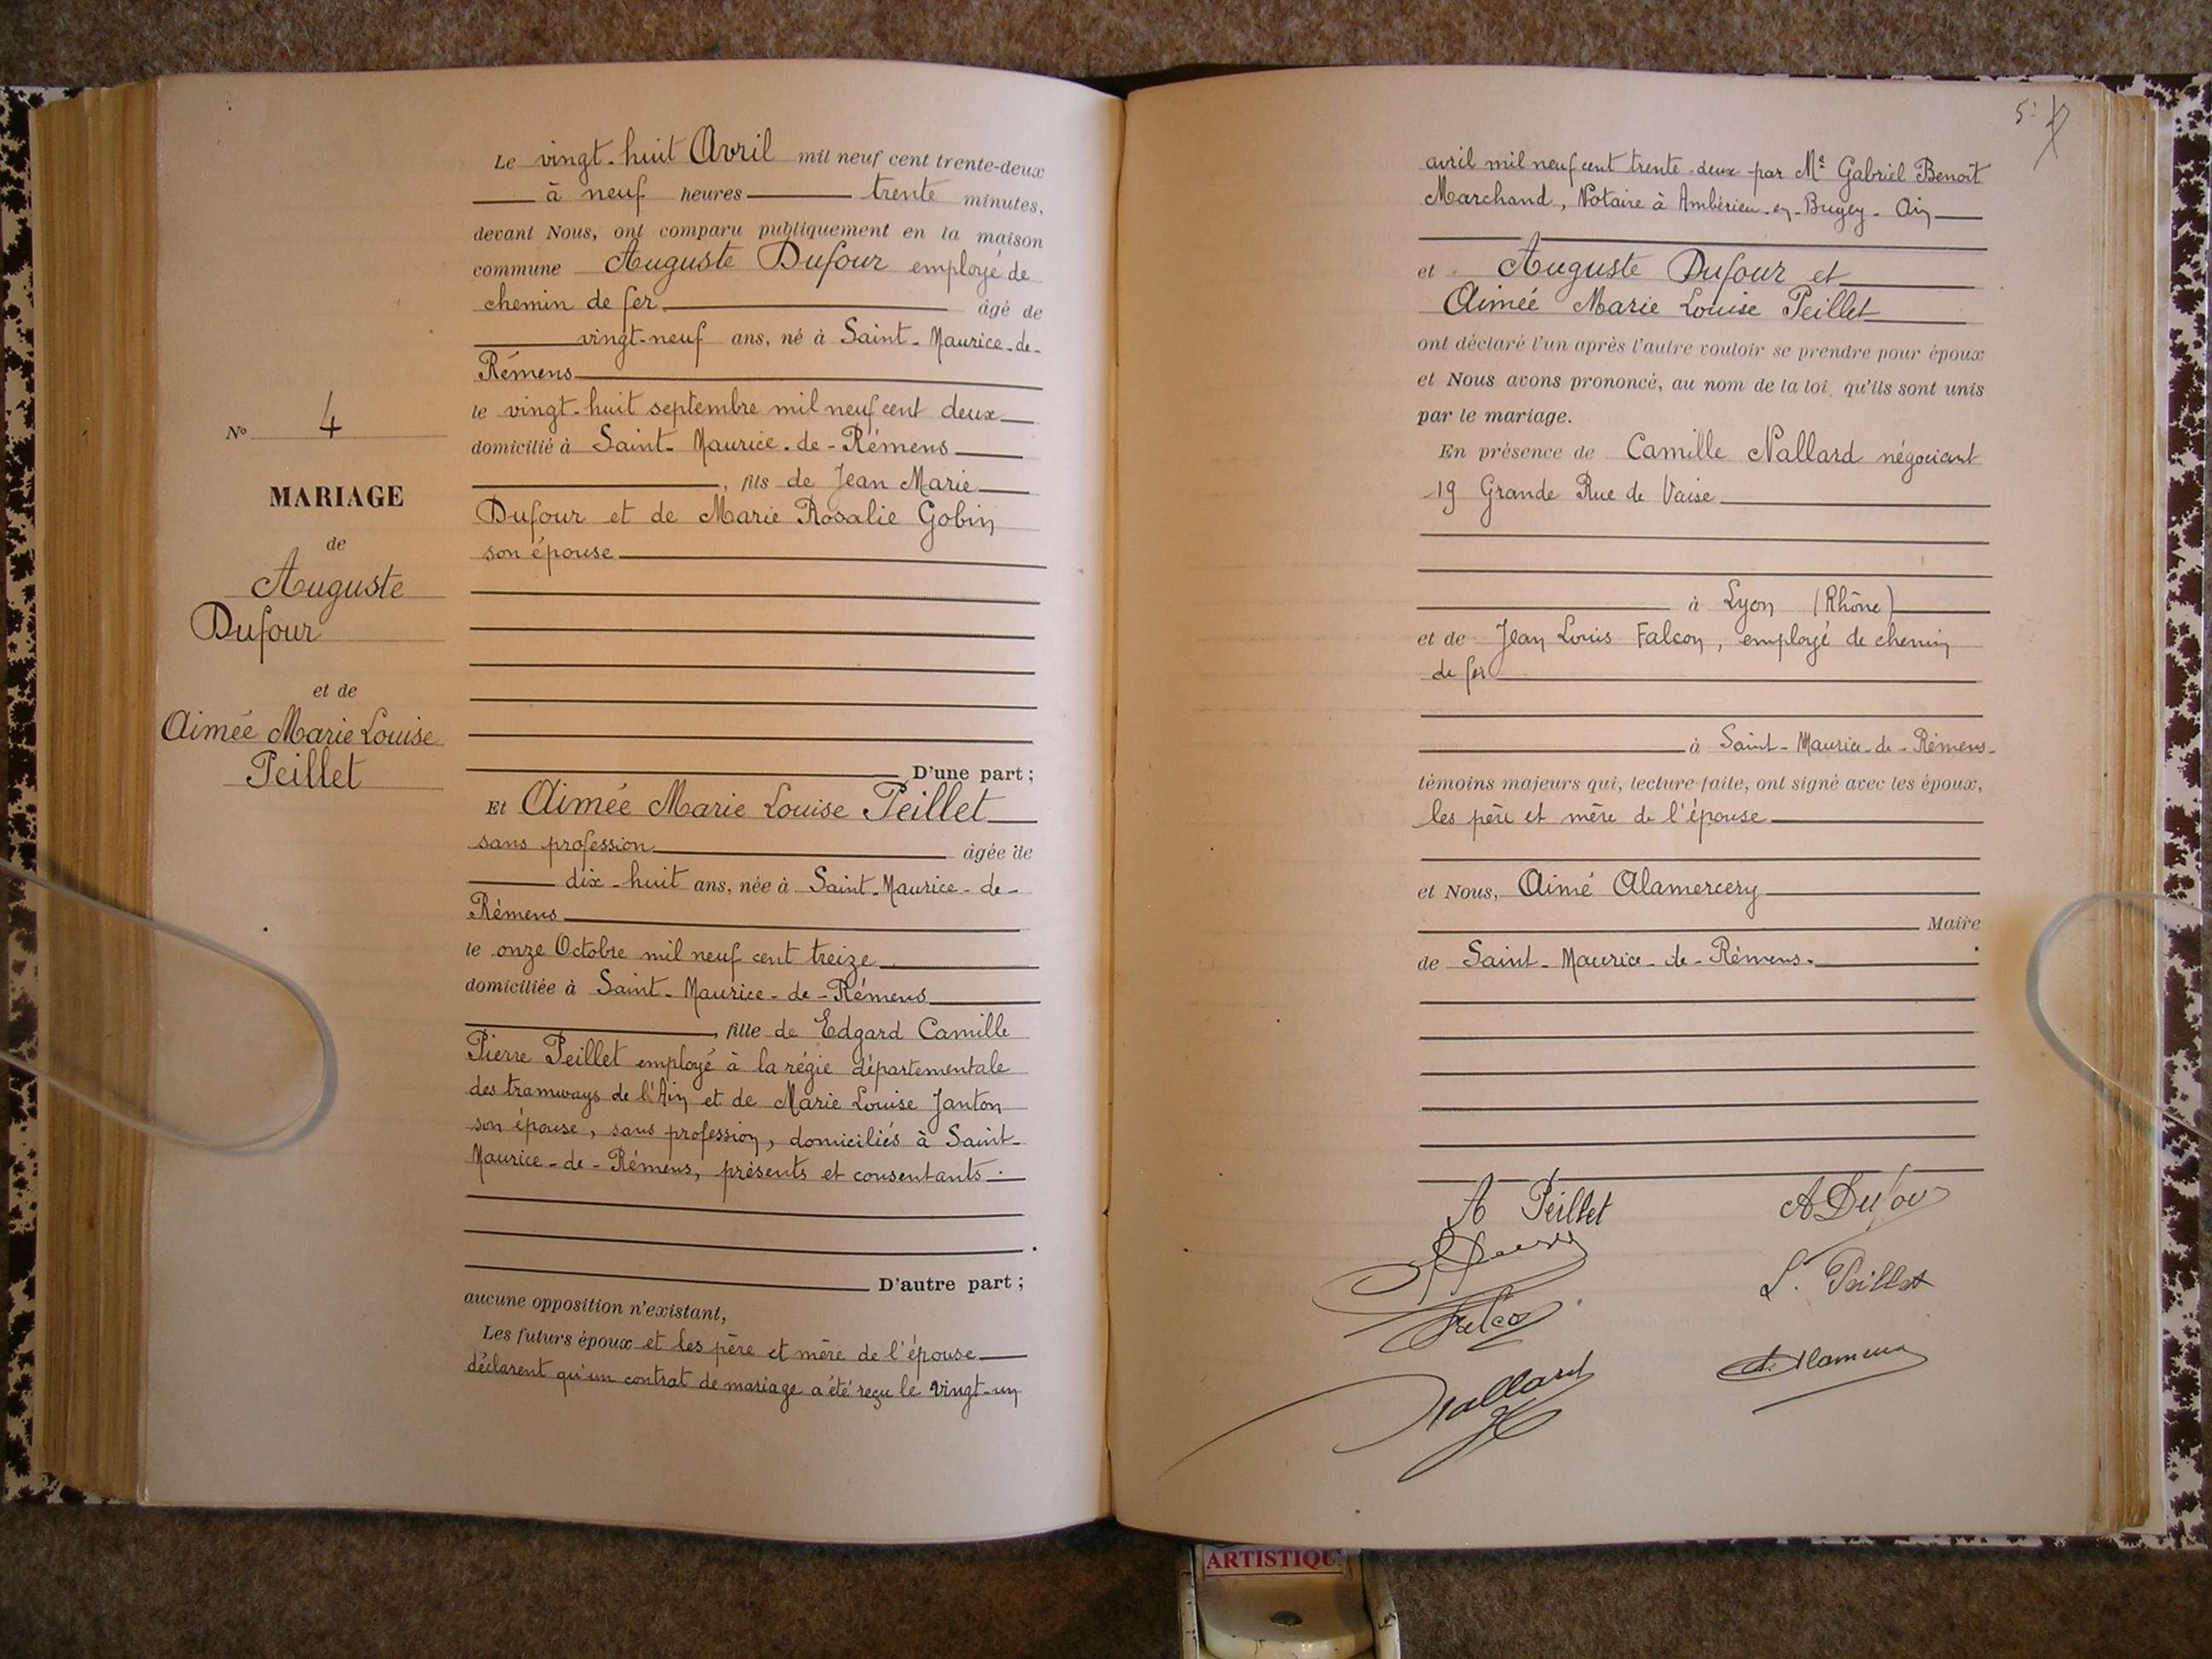 Le vingt-huit Avril mil neuf cent trente-deux
à neuf heures trente minutes,
devant Nous, ont comparu publiquement en la maison
commune Auguste Dufour employé de
chemin de fer âgé de
vingt-neuf ans, né à Saint-Maurice-de-
Rémens
le vingt-huit septembre mil neuf cent deux
domicilié à Saint-Maurice-de-Rémens
, fils de Jean Marie
Dufour et de Marie Rosalie Gobin
son épouse
D'une part ;
N° 4
MARIAGE
de
Auguste
Dufour
et de
Aimée Marie Louise
Peillet
Et Aimée Marie Louise Peillet
sans profession âgée de
dix-huit ans, née à Saint-Maurice-de-
Rémens
le onze Octobre mil neuf cent treize
domiciliée à Saint-Maurice-de-Rémens
, fille de Edgard Camille
Pierre Peillet employé à la régie départementale
des tramways de l'Ain et de Marie Louise Janton
son épouse, sans profession, domiciliés à Saint-
Maurice-de-Rémens, présents et consentants.
D'autre part ;
aucune opposition n'existant,
Les futurs époux et les père et mère de l'épouse
déclarent qu'un contrat de mariage a été reçu le vingt-un
5
avril mil neuf cent trente-deux par Me Gabriel Benoît
Marchand, Notaire à Ambérieu-en-Bugey-Ain
et Auguste Dufour et
Aimée Marie Louise Peillet
ont déclaré l'un après l'autre vouloir se prendre pour époux
et Nous avons prononcé, au nom de la loi, qu'ils sont unis
par le mariage.
En présence de Camille Nallard négociant
19 Grande Rue de Vaise
à Lyon (Rhône)
et de Jean Louis Falcon, employé de chemin
de fer
à Saint-Maurice-de-Rémens-
témoins majeurs qui, lecture faite, ont signé avec les époux,
les père et mère de l'épouse
et Nous, Aimé Alamercery
Maire
de Saint-Maurice-de-Rémens.
A Peillet
A Dufour
L. Peillet
Nallard
ARTISTIQU